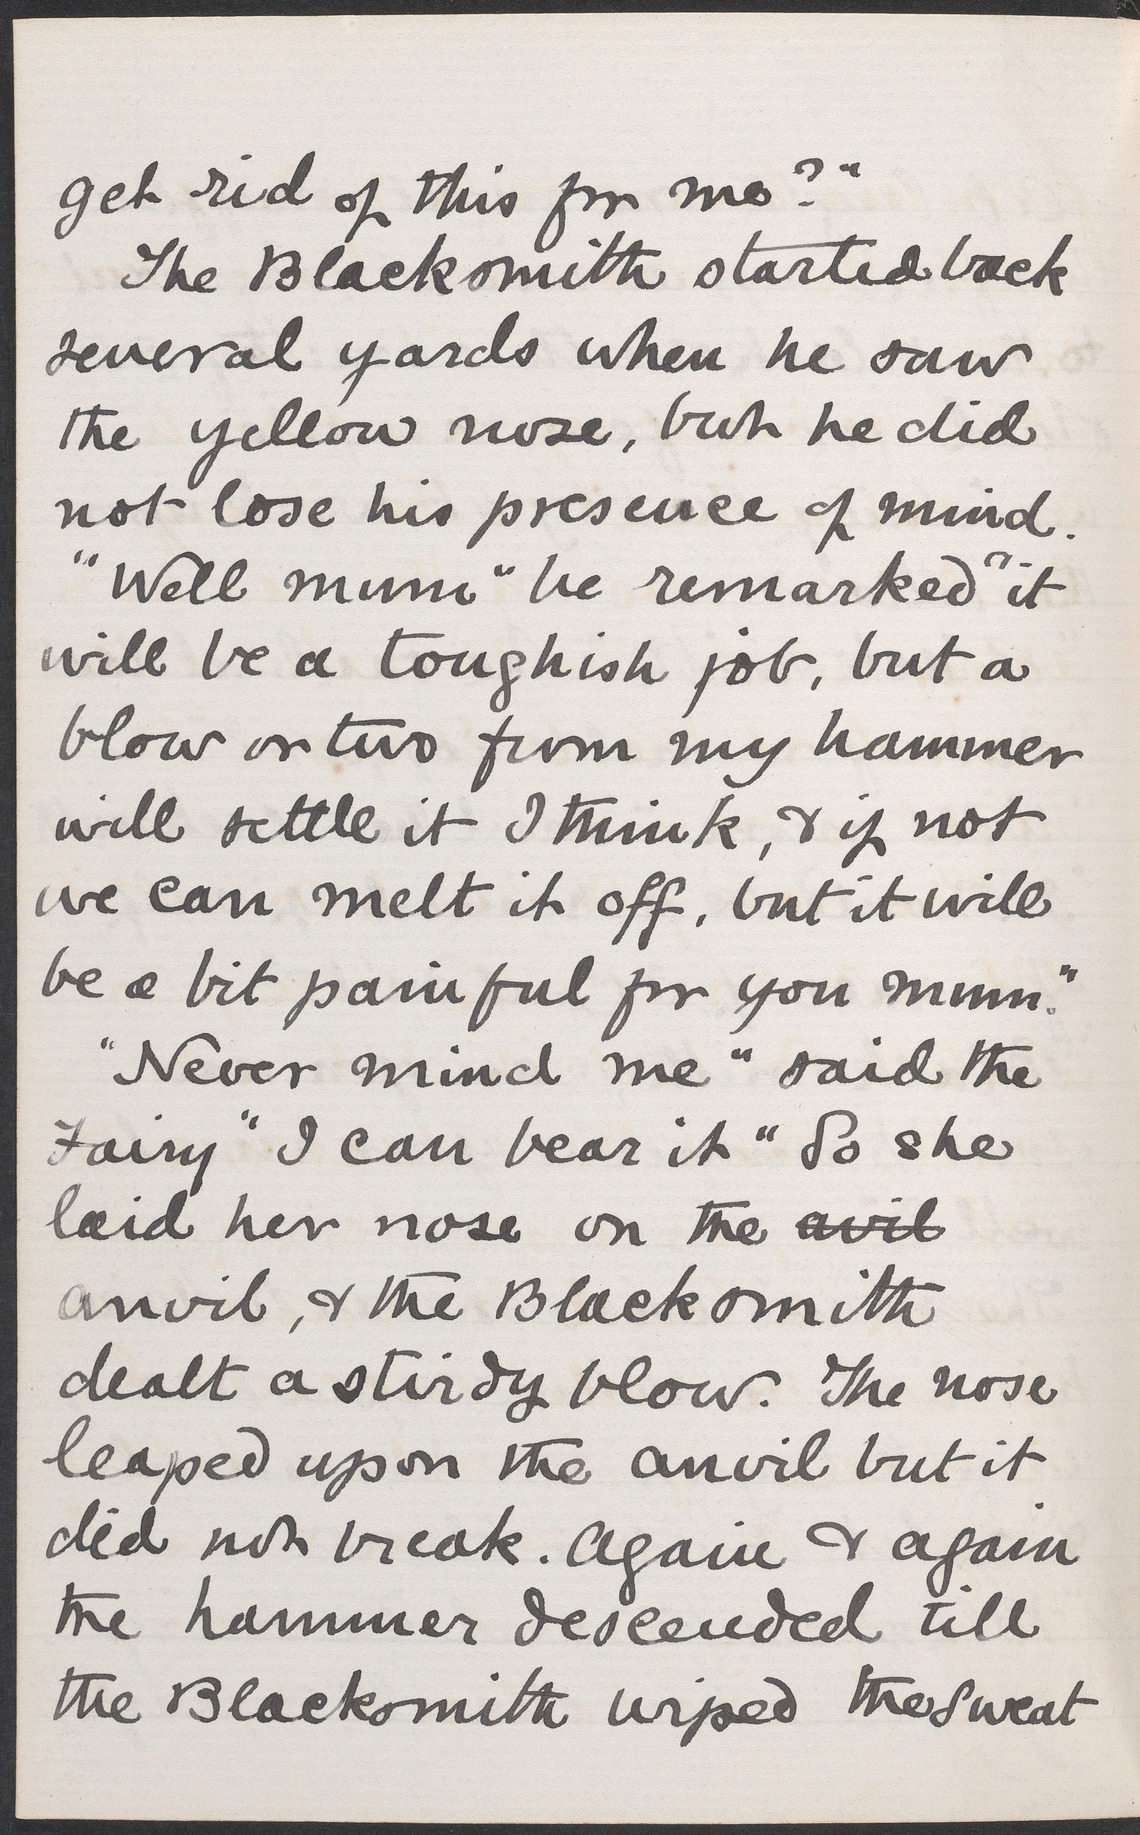 get rid of this for me?"
The Blacksmith started back
several yards when he saw
the yellow nose, but he did
not lose his presence of mind.
"Well mum" he remarked "it
will be a toughish job, but a
blow or two from my hammer
will settle it I think, & if not
we can melt it off, but it will
be a bit painful for you mum."
"Never mind me" said the
Fairy "I can bear it" So she
laid her nose on the avil
anvil, & the Blacksmith
dealt a stirdy blow. The nose
leaped upon the anvil but it
did not break. Again & again
the hammer descended till
the Blacksmith wiped the sweat